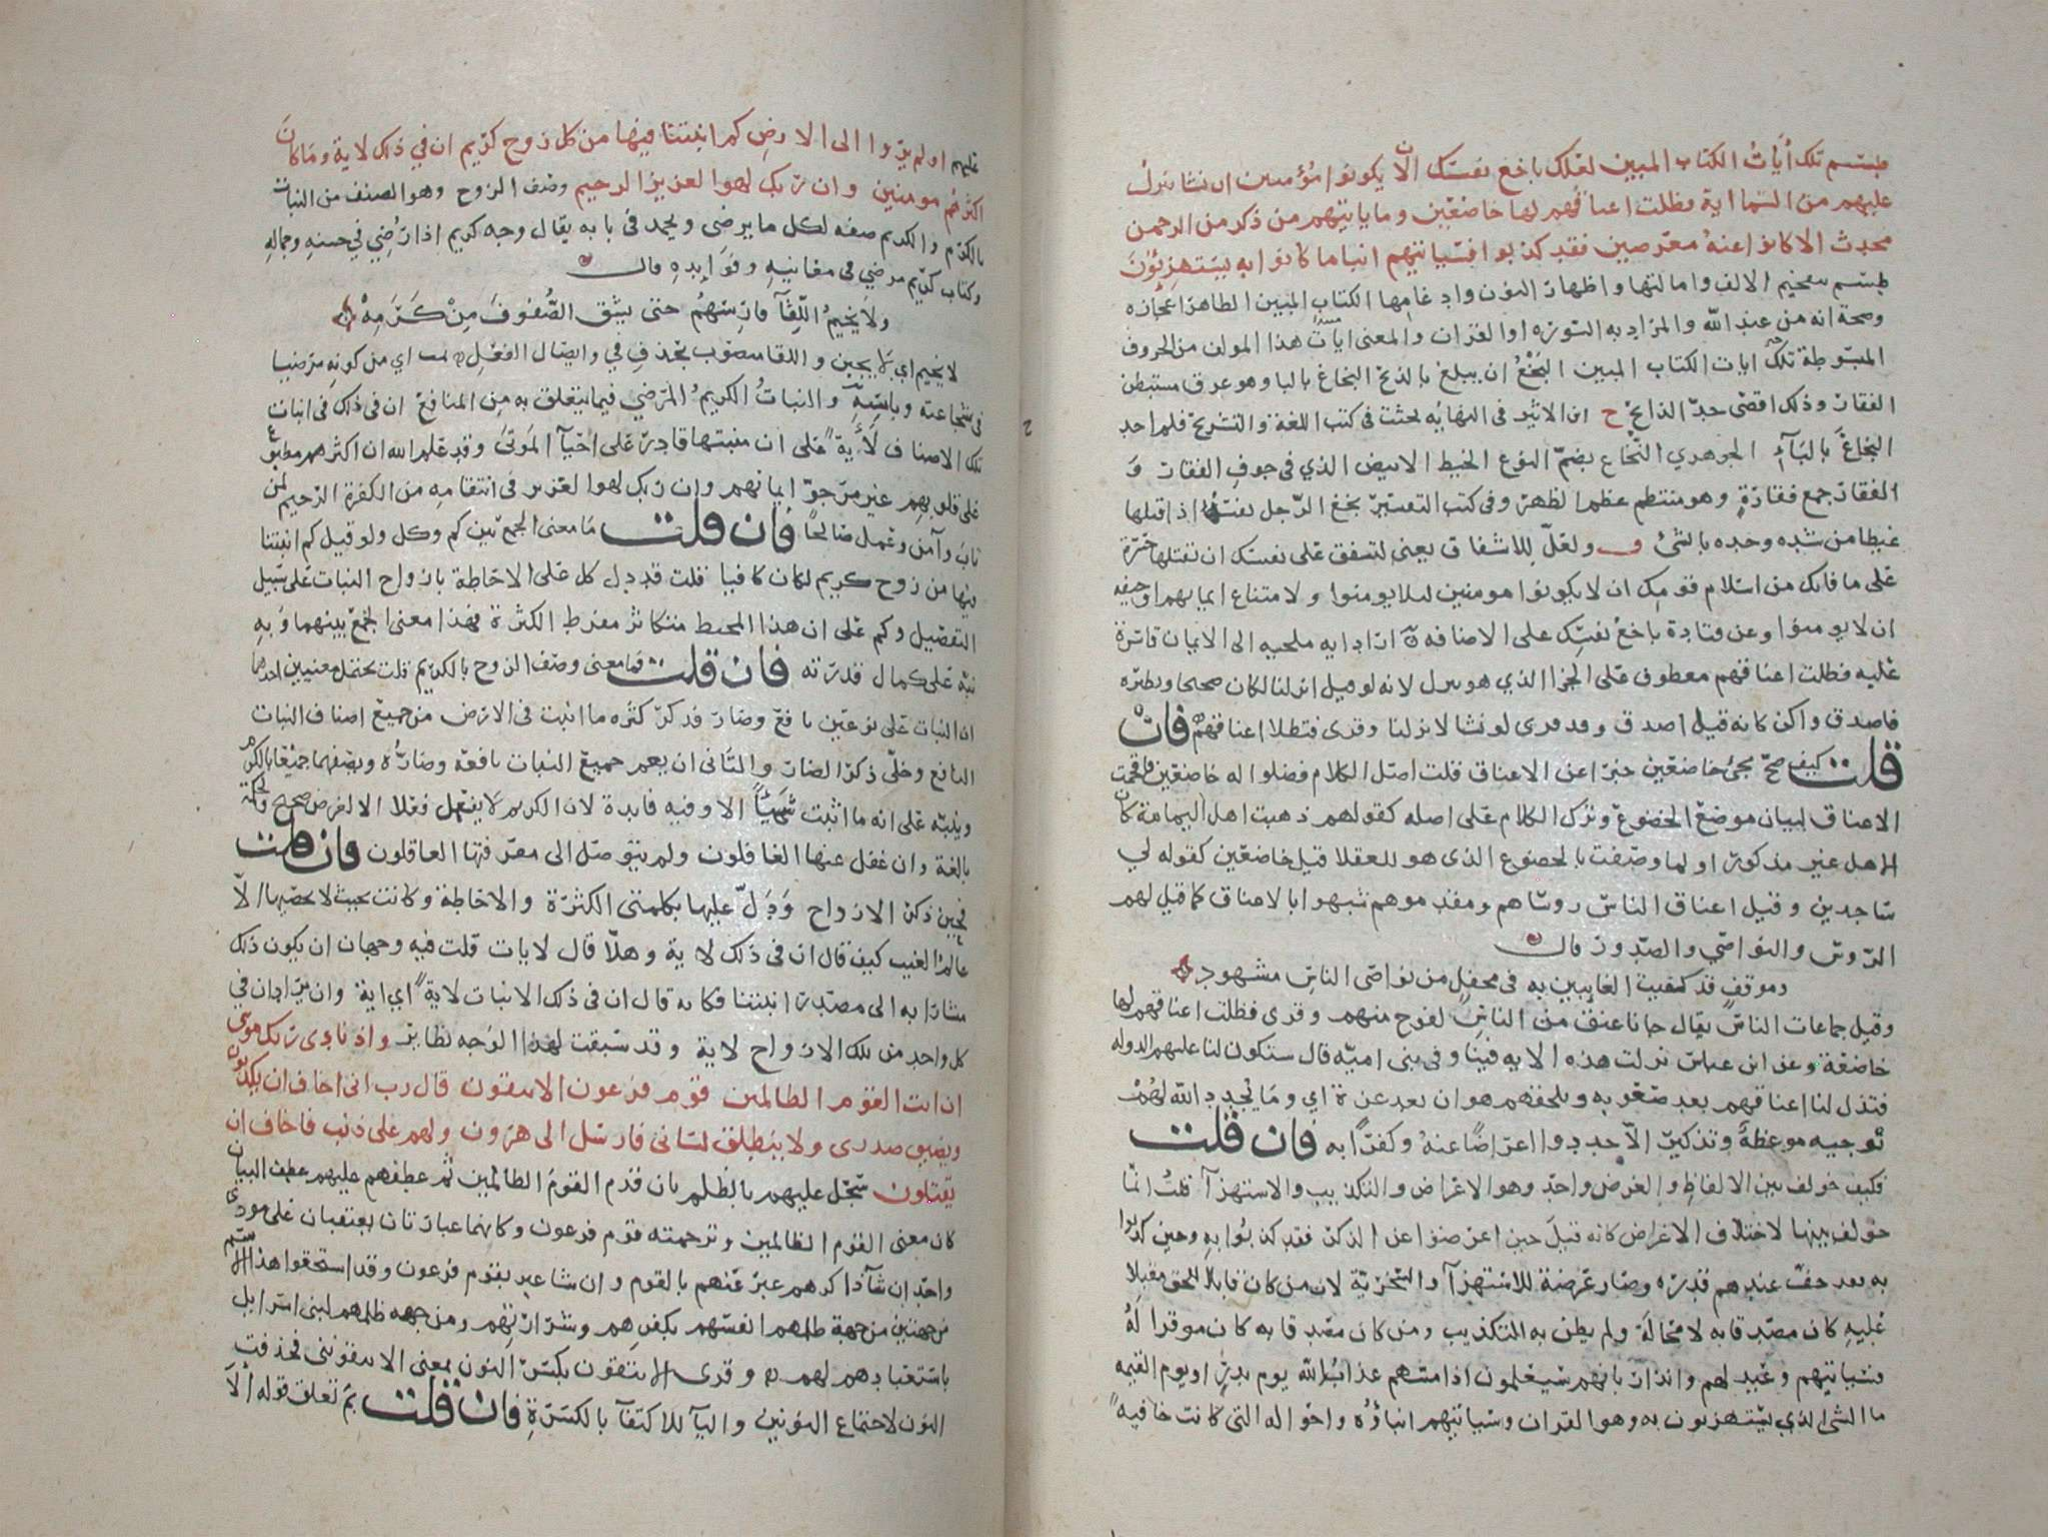 طسم تلك أيات الكتاب المبين لعلك باخع نفسك الا يكونوا مؤمنين ان نشا ننزل
عليهم من السماء اية فظلت اعناقهم لها خاضعين وما ياتيهم من ذكر من الرحمن
محدث الا كانوا عنه معرضين فقد كذبوا فسياتيهم انباء ما كانوا به يستهزئون
طسم بتفخيم الالف وامالتها واظهار النون وادغامها الكتاب المبين الظاهر اعجازه
وصحة انه من عند الله والمراد به السورة او القران والمعنى ايات هذا المولف من الحروف
المبسوطة تلك ايات الكتاب المبين البخع ان يبلغ بالذبح البخاع بالبا وهو عرق مستبطن
الفقار وذلك اقصى حد الذابح ح ابن الاثير في النهايه بحثت في كتب اللغة والتشريح فلم اجد
البخاع بالباء الجوهري النخاع بضم النون الخيط الابيض الذي في جوف الفقار و
الفقار جمع فقارة وهو منتظم عظم الظهر وفي كتب التفسير بخع الرجل نفسه اذا قتلها
غيظا من شدة وجده بالشئ ولعل للاشفاق يعني اشفق على نفسك ان تقتلها حسرة
على ما فاتك من اسلام قومك ان لا يكونوا مومنين لئلا يومنوا ولا متناع ايمانهم او خيفه
ان لا يومنوا وعن قتادة باخع نفسك على الاضافه اراد ايه ملجيه الى الايمان قاسرة
عليه فظلت اعناقهم معطوف على الجزا الذي هو ننزل لانه لو قيل انزلنا لكان صحيحا ونظيره
فاصدق واكن كانه قيل اصدق وقد قرى لو نشا لانزلنا وقرى فتظلل اعناقهم فان
قلت كيف صح مجئ خاضعين خبرا عن الاعناق قلت اصل الكلام فظلوا له خاضعين فاقحمت
الاعناق لبيان موضع الخضوع وترك الكلام على اصله كقولهم ذهبت اهل اليمامة كان
الاهل غير مذكور او لما وصفت بالخضوع الذى هو للعقلا قيل خاضعين كقوله لي
ساجدين وقيل اعناق الناس روساهم ومقدموهم شبهوا بالاعناق كما قيل لهم
الروس والنواصي والصدور قال
وموقف قد كفيت الغايبين به في محفل من نواصى الناس مشهود
وقيل جماعات الناس يقال جانا عنق من الناس لفوج منهم وقرى فظلت اعناقهم لها
خاضعة وعن ابن عباس نزلت هذه الايه فينا وفي بني امية قال ستكون لنا عليهم الدوله
فتذل لنا اعناقهم بعد صعوبه ويلحقهم هوان بعد عزة اي وما يجدد الله لهم
توجيه موعظة وتذكير الا جددوا اعراضا عنه وكفرا به فان قلت
فكيف خولف بين الالفاظ والغرض واحد وهو الاعراض والتكذيب والاستهزا قلت انما
خولف بينها لاختلاف الاغراض كانه قيل حين اعرضوا عن الذكر فقد كذبوا به وحين كذبوا
به بعد خف عندهم قدره وصار عرضة للاستهزا والسخرية لان من كان قابلا للحق مقبلا
عليه كان مصدقا به لا محالة ولم يظن به التكذيب ومن كان مصدقا به كان موقرا له
فسياتيهم وعيد لهم وانذار بانهم سيعلمون اذا مسهم عذاب الله يوم بدر او يوم القيمه
ما الشي الذي يستهزون به وهو القران وسياتيهم انباؤه واحواله التي كانت خافية
عليهم اولم يروا الى الارض كم انبتنا فيها من كل زوج كريم ان في ذلك لاية وما كان
اكثرهم مومنين وان ربك لهو العزيز الرحيم وصف الزوج وهو الصنف من النبات
بالكرم والكريم صفه لكل ما يرضى ويحمد في بابه يقال وجه كريم اذا رضي في حسنه وجماله
وكتاب كريم مرضي في معانيه وفوايده قال
ولا يخيم اللقآ فارسهم حتى يشق الصفوف من كرمه
لا يخيم اي لا يجبن واللقا منصوب بحذف في وايصال الفعل اي من كونه مرضيا
في شجاعته وباسه والنبات الكريم المرضي فيما يتعلق به من المنافع ان في ذلك في انبات
تلك الاصناف لآية على ان منبتها قادر على احيآ الموتى وقد علم الله ان اكثرهم مطبوع
على قلوبهم غير مرجو ايمانهم وان ربك لهو العزيز في انتقامه من الكفرة الرحيم لمن
تاب وآمن وعمل صالحا فان قلت ما معنى الجمع بين كم وكل ولو قيل كم انبتنا
فيها من زوج كريم لكان كافيا قلت قد دل كل على الاحاطة بازواج النبات على سبيل
التفصيل وكم على ان هذا المحيط متكاثر مفرط الكثرة فهذا معنى الجمع بينهما وبه
نبه على كمال قدرته فان قلت فما معنى وصف الزوج بالكريم قلت يحتمل معنيين احدهما
ان النبات على نوعين نافع وضار فذكر كثرة ما انبت في الارض من جميع اصناف النبات
النافع وخلى ذكر الضار والثاني ان يعم جميع النبات نافعه وضاره ويصفهما جميعا بالكرم
وينبه على انه ما انبت شيئا الا وفيه فايدة لان الكريم لا يفعل فعلا الا لغرض صحيح ولحكمة
بالغة وان غفل عنها الغافلون ولم يتوصل الى معرفتها العاقلون فان قلت
فحين ذكر الازواج ودل عليها بكلمتي الكثرة والاحاطة وكانت بحيث لا يحصيها الا
عالم الغيب كيف قال ان في ذلك لاية وهلا قال لايات قلت فيه وجهان ان يكون ذلك
مشارا به الى مصدر انبتنا فكانه قال ان في ذلك الانبات لاية اي اية وان يراد ان في
كل واحد من تلك الازواج لاية وقد سبقت لهذا الوجه نظاير واذ نادى ربك موسى
ان ائت القوم الظالمين قوم فرعون الا يتقون قال رب اني اخاف ان يكذبون
ويضيق صدري ولا ينطلق لساني فارسل الى هرون ولهم على ذنب فاخاف ان
يقتلون سجل عليهم بالظلم بان قدم القوم الظالمين ثم عطفهم عليهم عطف البيان
كان معنى القوم الظالمين وترجمته قوم فرعون وكانهما عبارتان يعتقبان على مودى
واحد ان شآ ذاكرهم عبر عنهم بالقوم وان شا عبر بقوم فرعون وقد استحقوا هذا الاسم
من جهتين من جهة ظلمهم انفسهم بكفرهم وشرارتهم ومن جهه ظلمهم لبني اسرايل
باستعبادهم لهم وقرى الا يتقون بكسر النون بمعنى الا يتقونني فحذفت
النون لاجتماع النونين واليآ للاكتفآ بالكسرة فان قلت بم تعلق قوله الا